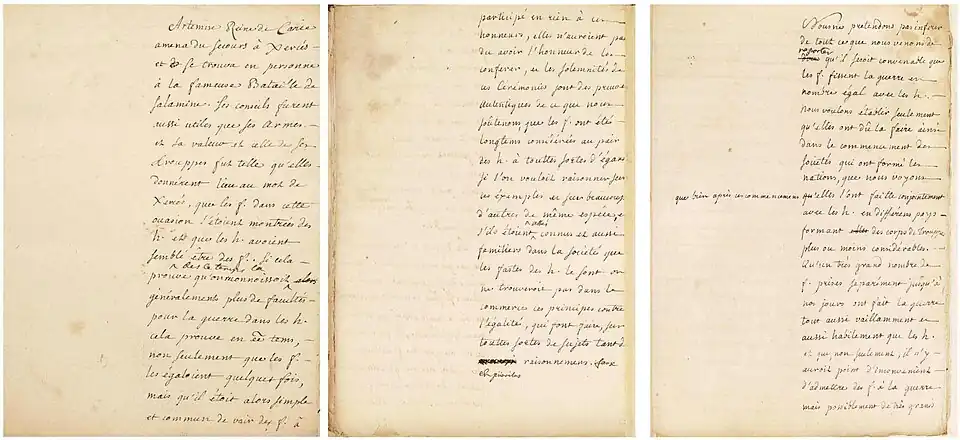 Artemise Reine de Carie
amena du secours à Xercès
et se trouva en personne
à la fameuse Bataille de
Salamine. Ses conseils furent
aussi utiles que ses Armes.
et sa valeur et celle de ses
trouppes fut telle qu'elles
donnèrent lieu au mot de
Xercès, que les f. dans cette
ocasion s'étoient montrées des
h. et que les h. avoient
semblé être des f. Si cela
dès ce temps la
prouve qu'on reconnoissoit alors
généralement plus de facultés
pour la guerre dans les h.
cela prouve en mê tems,
non seulement que les f.
les égaloient quelques fois,
mais qu'il étoit alors simple
et commun de voir des f. à
participé en rien à ces
honneurs, elles n'auroient pas
du avoir l'honneur de les
conferer, et les solemnités de
ces Cérémonies sont des preuves
autentiques de ce que nous
soutenons que les f. ont été
longtems considérées au pair
des h. à touttes sortes d'égards
si l'on vouloit raisonner sur
ces exemples et sur beaucoup
d'autres de même espèce, et
s'ils étoient connus et aussi
familiers dans la société que
les fastes des h. le sont on
ne trouveroit pas dans le
commerce ces principes contre
l'égalité, qui font faire, sur
touttes sortes de sujets tant de
raisonnemens. faux
Nous ne prétendons pas inférer
de tout ce que nous venons de
raporter
qu'il seroit convenable que
les f. fissent la guerre en
nombre égal avec les h.
nous voulons établir seulement
qu'elles ont dû la faire ainsi
dans le commencement des
sociétés qui ont formé les
nations, que nous voyons
que bien après ces commencemens qu'elles l'ont faitte conjointement
avec les h. en differens pays
formant des corps de trouppes
plus ou moins considerables.
qu'un très grand nombre de
f. prises séparément jusqu'à
nos jours ont fait la guerre
tout aussi vaillamment et
aussi habilement que les h.
et que non seulement, il n'y
auroit point d'inconvenient
d'admettre des f. à la guerre
mais possiblement de très grands